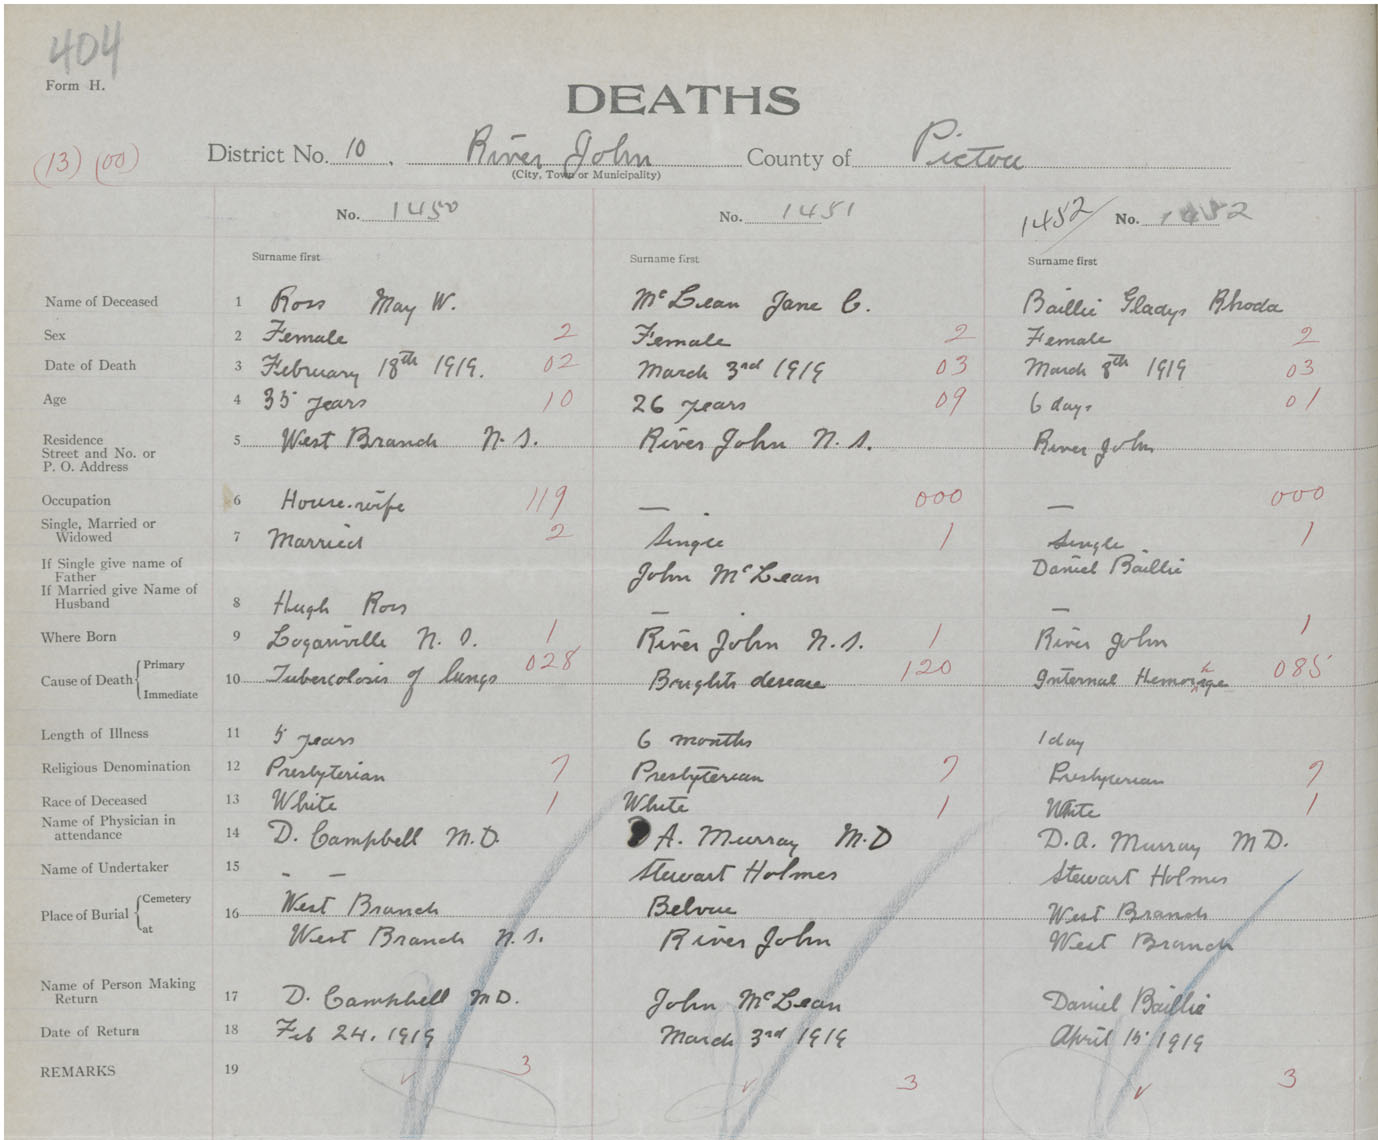 404
Form H.
DEATHS
(13) (00) District No. 10. River John County of Pictou
(City, Town or Municipality)
No. 1450 No. 1451 1452 No. 1452
Surname first Surname first Surname first
Name of Deceased 1 Ross May W. McLean Jane C. Baillie Gladys Rhoda
Sex 2 Female 2 Female 2 Female 2
Date of Death 3 February 18th 1919. 02 March 3rd 1919 03 March 8th 1919 03
Age 4 35 years 10 26 years 09 6 days 01
Residence 5 West Branch N.S. River John N.S. River John
Street and No. or
P. O. Address
Occupation 6 House-wife 119 — 000 — 000
Single, Married or
Widowed 7 Married 2 Single 1 Single 1
If Single give name of
Father John McLean Daniel Baillie
If Married give Name of
Husband 8 Hugh Ross — —
Where Born 9 Loganville N.S. 1 River John N.S. 1 River John 1
Cause of Death { Primary
Immediate 10 Tubercolosis of lungs 028 Brights desease 120 Internal Hemorhage 085
Length of Illness 11 5 years 6 months 1 day
Religious Denomination 12 Presbyterian 7 Presbyterian 7 Presbyterian 7
Race of Deceased 13 White 1 White 1 White 1
Name of Physician in
attendance 14 D. Campbell M.D. A. Murray M.D D.A. Murray M D.
Name of Undertaker 15 - - Stewart Holmes Stewart Holmes
Place of Burial { Cemetery 16 West Branch Belvue West Branch
at West Branch N.S. River John West Branch
Name of Person Making
Return 17 D. Campbell M.D. John McLean Daniel Baillie
Date of Return 18 Feb 24, 1919 March 3rd 1919 April 15 1919
REMARKS 19 3 3 3